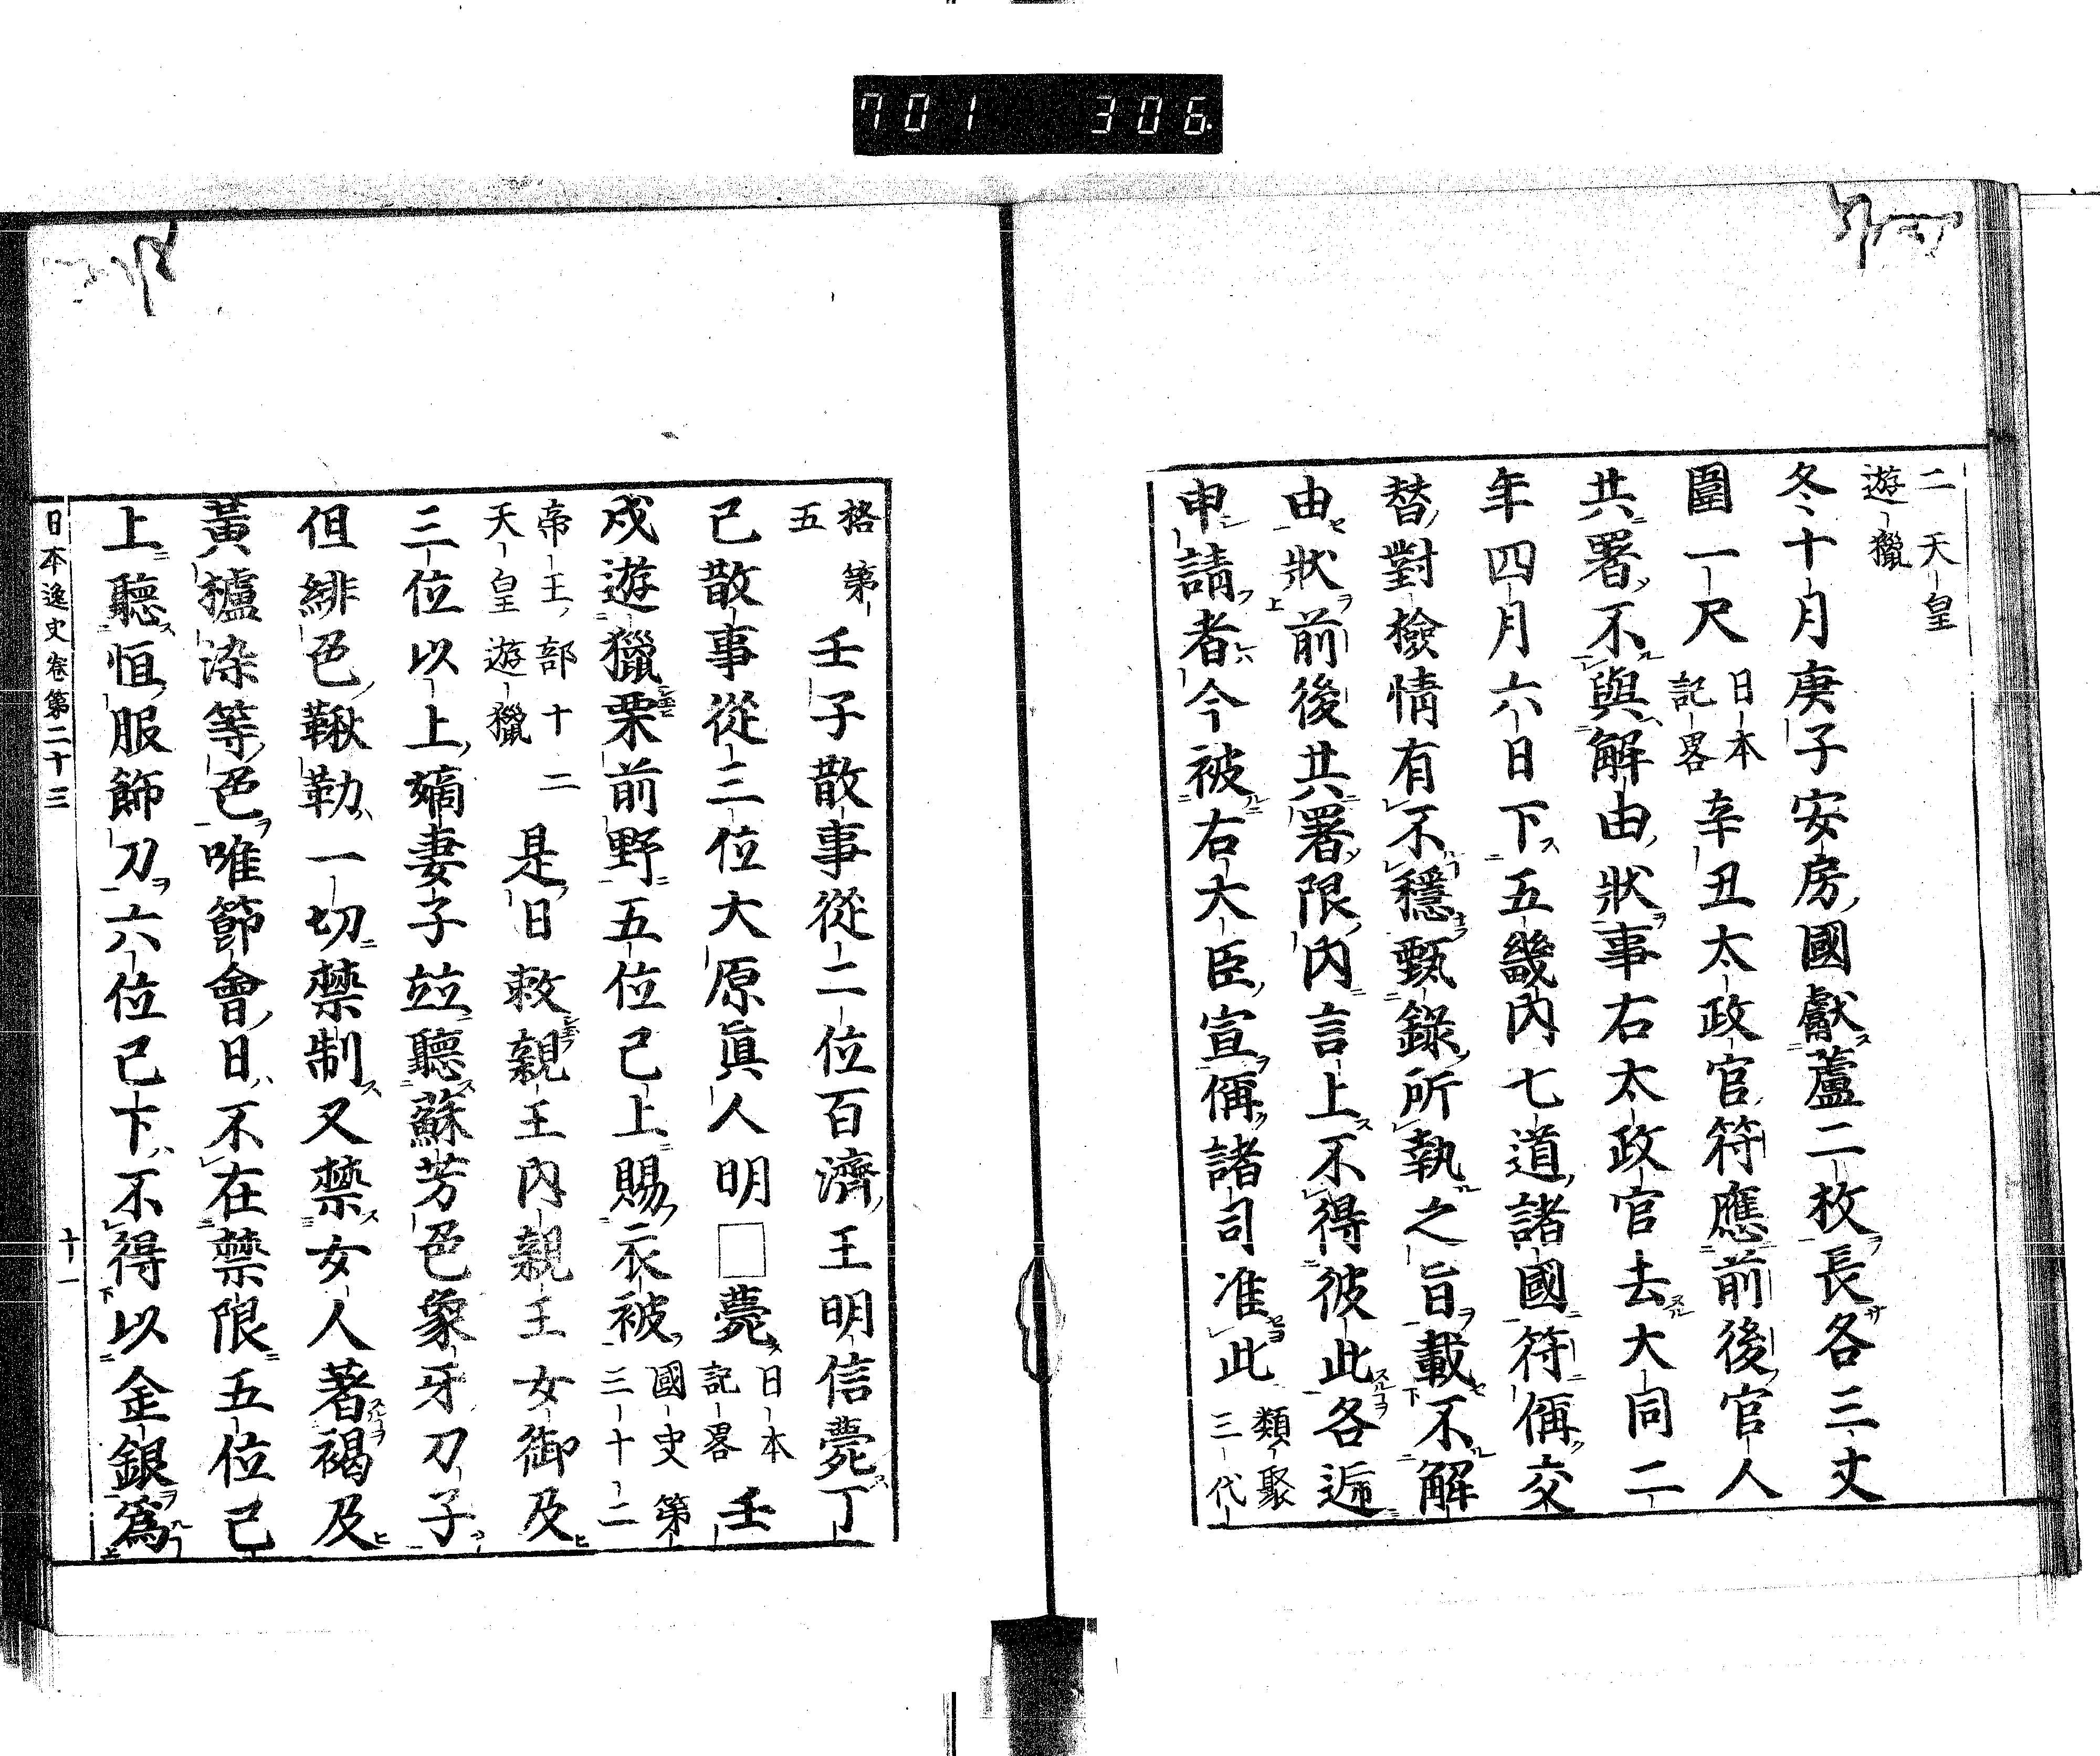 701 306
二 天皇
遊獵
冬十月庚子安房國獻蘆二枚長各三丈
圍一尺 日本記畧 辛丑太政官符應前後官人
共署不與解由狀事右太政官去大同二
年四月六日下五畿内七道諸國符偁交
替對撿情有不穩甄錄所執之旨載不解
由狀前後共署限内言上不得彼此各遁
申請者今被右大臣宣偁諸司准此 類聚三代
格第五 壬子散事從二位百濟王明信薨丁
巳散事從三位大原眞人明□薨 日本記畧 壬
戌遊獵栗前野五位已上賜衣被 國史第三十二
帝王部十二天皇遊獵 是日敕親王内親王女御及
三位以上嫡妻子竝聽蘇芳色象牙刀子
但緋色鞦勒一切禁制又禁女人著褐及
黃櫨染等色唯節會日不在禁限五位已
上聽恒服餝刀六位已下不得以金銀爲
日本逸史卷第二十三 十一